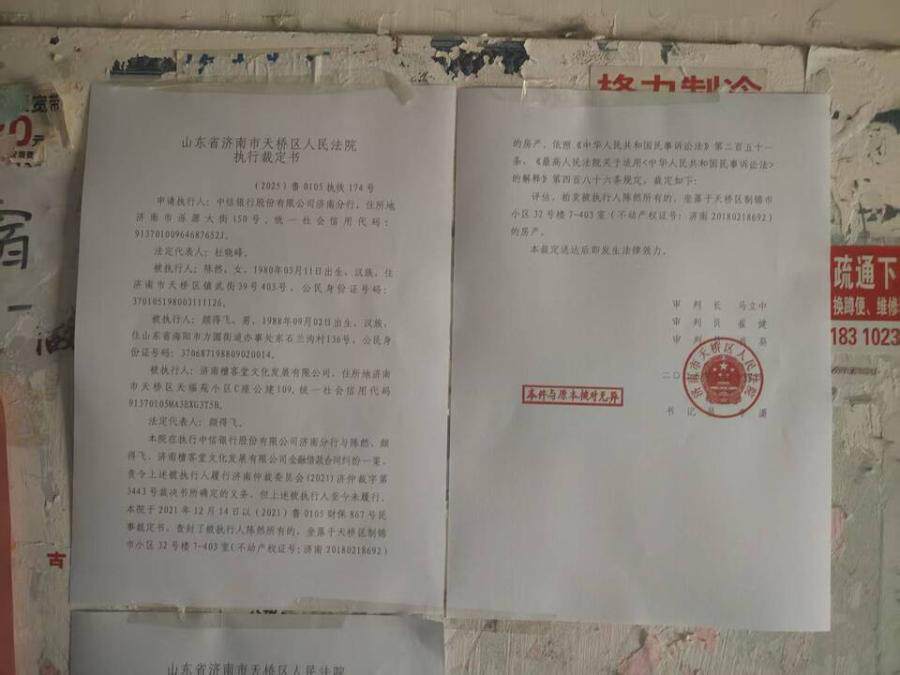 格力制冷
宽带
山东省济南市天桥区人民法院
执行裁定书
(2025)鲁0105执恢174号
申请执行人:中信银行股份有限公司济南分行,住所地
济南市泺源大街150号,统一社会信用代码:
91370100964687652J。
法定代表人:杜晓峰。
被执行人:陈然,女,1980年03月11日出生,汉族,住
济南市天桥区镇武街39号403号,公民身份证号码:
370105198003111126。
被执行人:颜得飞,男,1988年09月02日出生,汉族,
住山东省海阳市方圆街道办事处东石兰沟村136号,公民身
份证号码:370687198809020014。
被执行人:济南檀客堂文化发展有限公司,住所地济南
市天桥区天福苑小区C座公建109,统一社会信用代码
91370105MA3EXG3T5R。
法定代表人:颜得飞。
本院在执行中信银行股份有限公司济南分行与陈然、颜
得飞、济南檀客堂文化发展有限公司金融借款合同纠纷一案,
责令上述被执行人履行济南仲裁委员会(2021)济仲裁字第
3443号裁决书所确定的义务,但上述被执行人至今未履行。
本院于2021年12月14日以(2021)鲁0105财保867号民
事裁定书,查封了被执行人陈然所有的,坐落于天桥区制锦
市小区32号楼7-403室(不动产权证号:济南20180218692)
的房产。依照《中华人民共和国民事诉讼法》第二百五十一
条、《最高人民法院关于适用<中华人民共和国民事诉讼法>
的解释》第四百八十六条规定,裁定如下:
评估、拍卖被执行人陈然所有的,坐落于天桥区制锦市
小区32号楼7-403室(不动产权证号:济南20180218692)
的房产。
本裁定送达后即发生法律效力。
审 判 长 马立中
审 判 员 崔 健
审 判
二〇
济南市天桥区人民法院
本件与原本核对无异
书 记 员
疏通下
换蹲便、维修
183 1023
古
山东省济南市天桥区人民法院